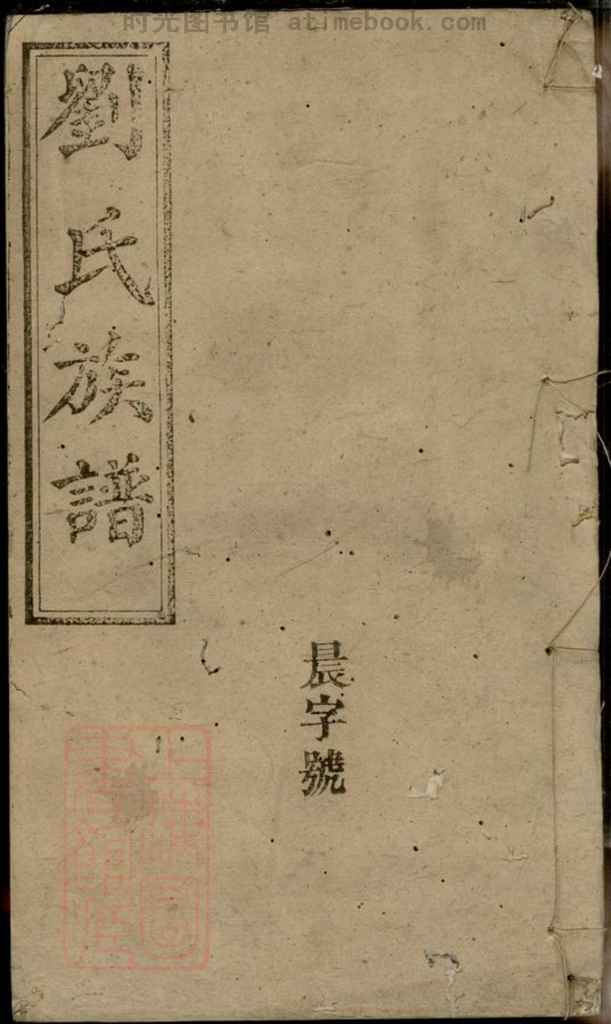 时光图书馆 - atimebook.com
劉氏族譜
晨字號